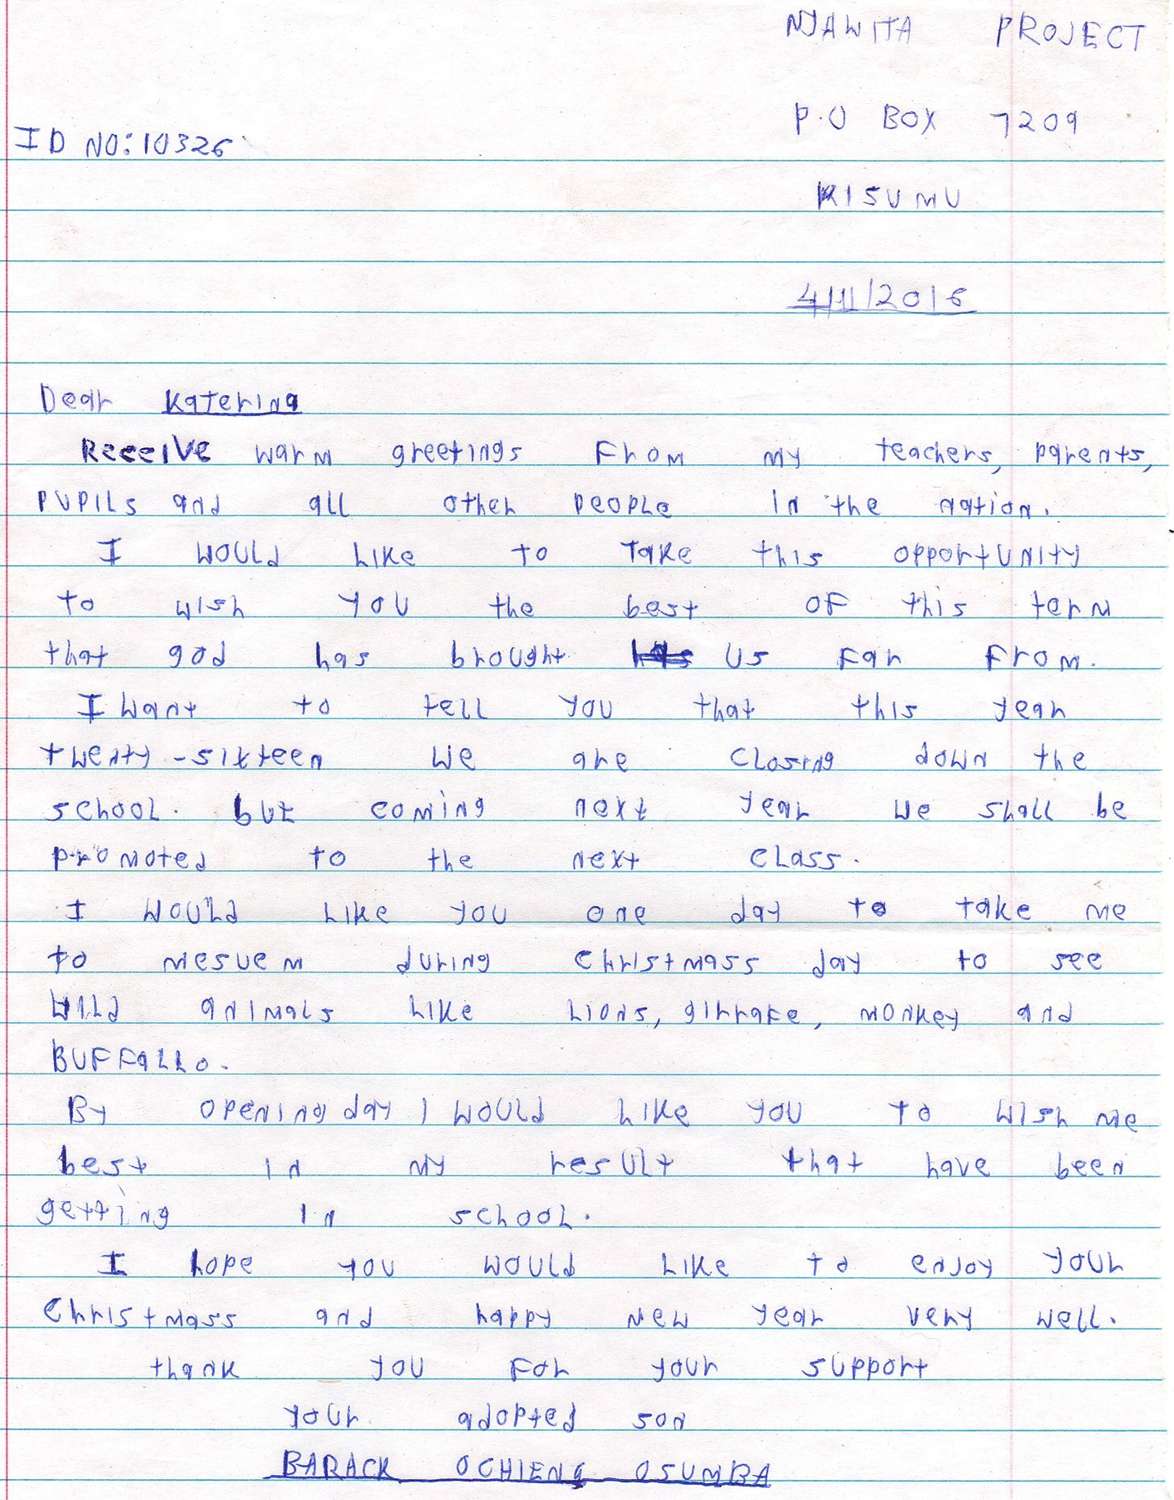 NJAWITA PROJECT
P.O BOX 7209
ID NO: 10326
KISUMU
4/11/2016
Dear Katerina
Receive warm greetings from my teachers, parents,
pupils and all other people in the nation.
I would like to take this opportunity
to wish you the best of this term
that god has brought us far from.
I want to tell you that this year
twenty-sixteen we are closing down the
school. but coming next year we shall be
promoted to the next class.
I would like you one day to take me
to mesuem during christmass day to see
wild animals like lions, girrafe, monkey and
BUFFALLO.
By opening day I would like you to wish me
best in my result that have been
getting in school.
I hope you would like to enjoy your
christmass and happy new year very well.
thank you for your support
your adopted son
BARACK OCHIENG OSUMBA